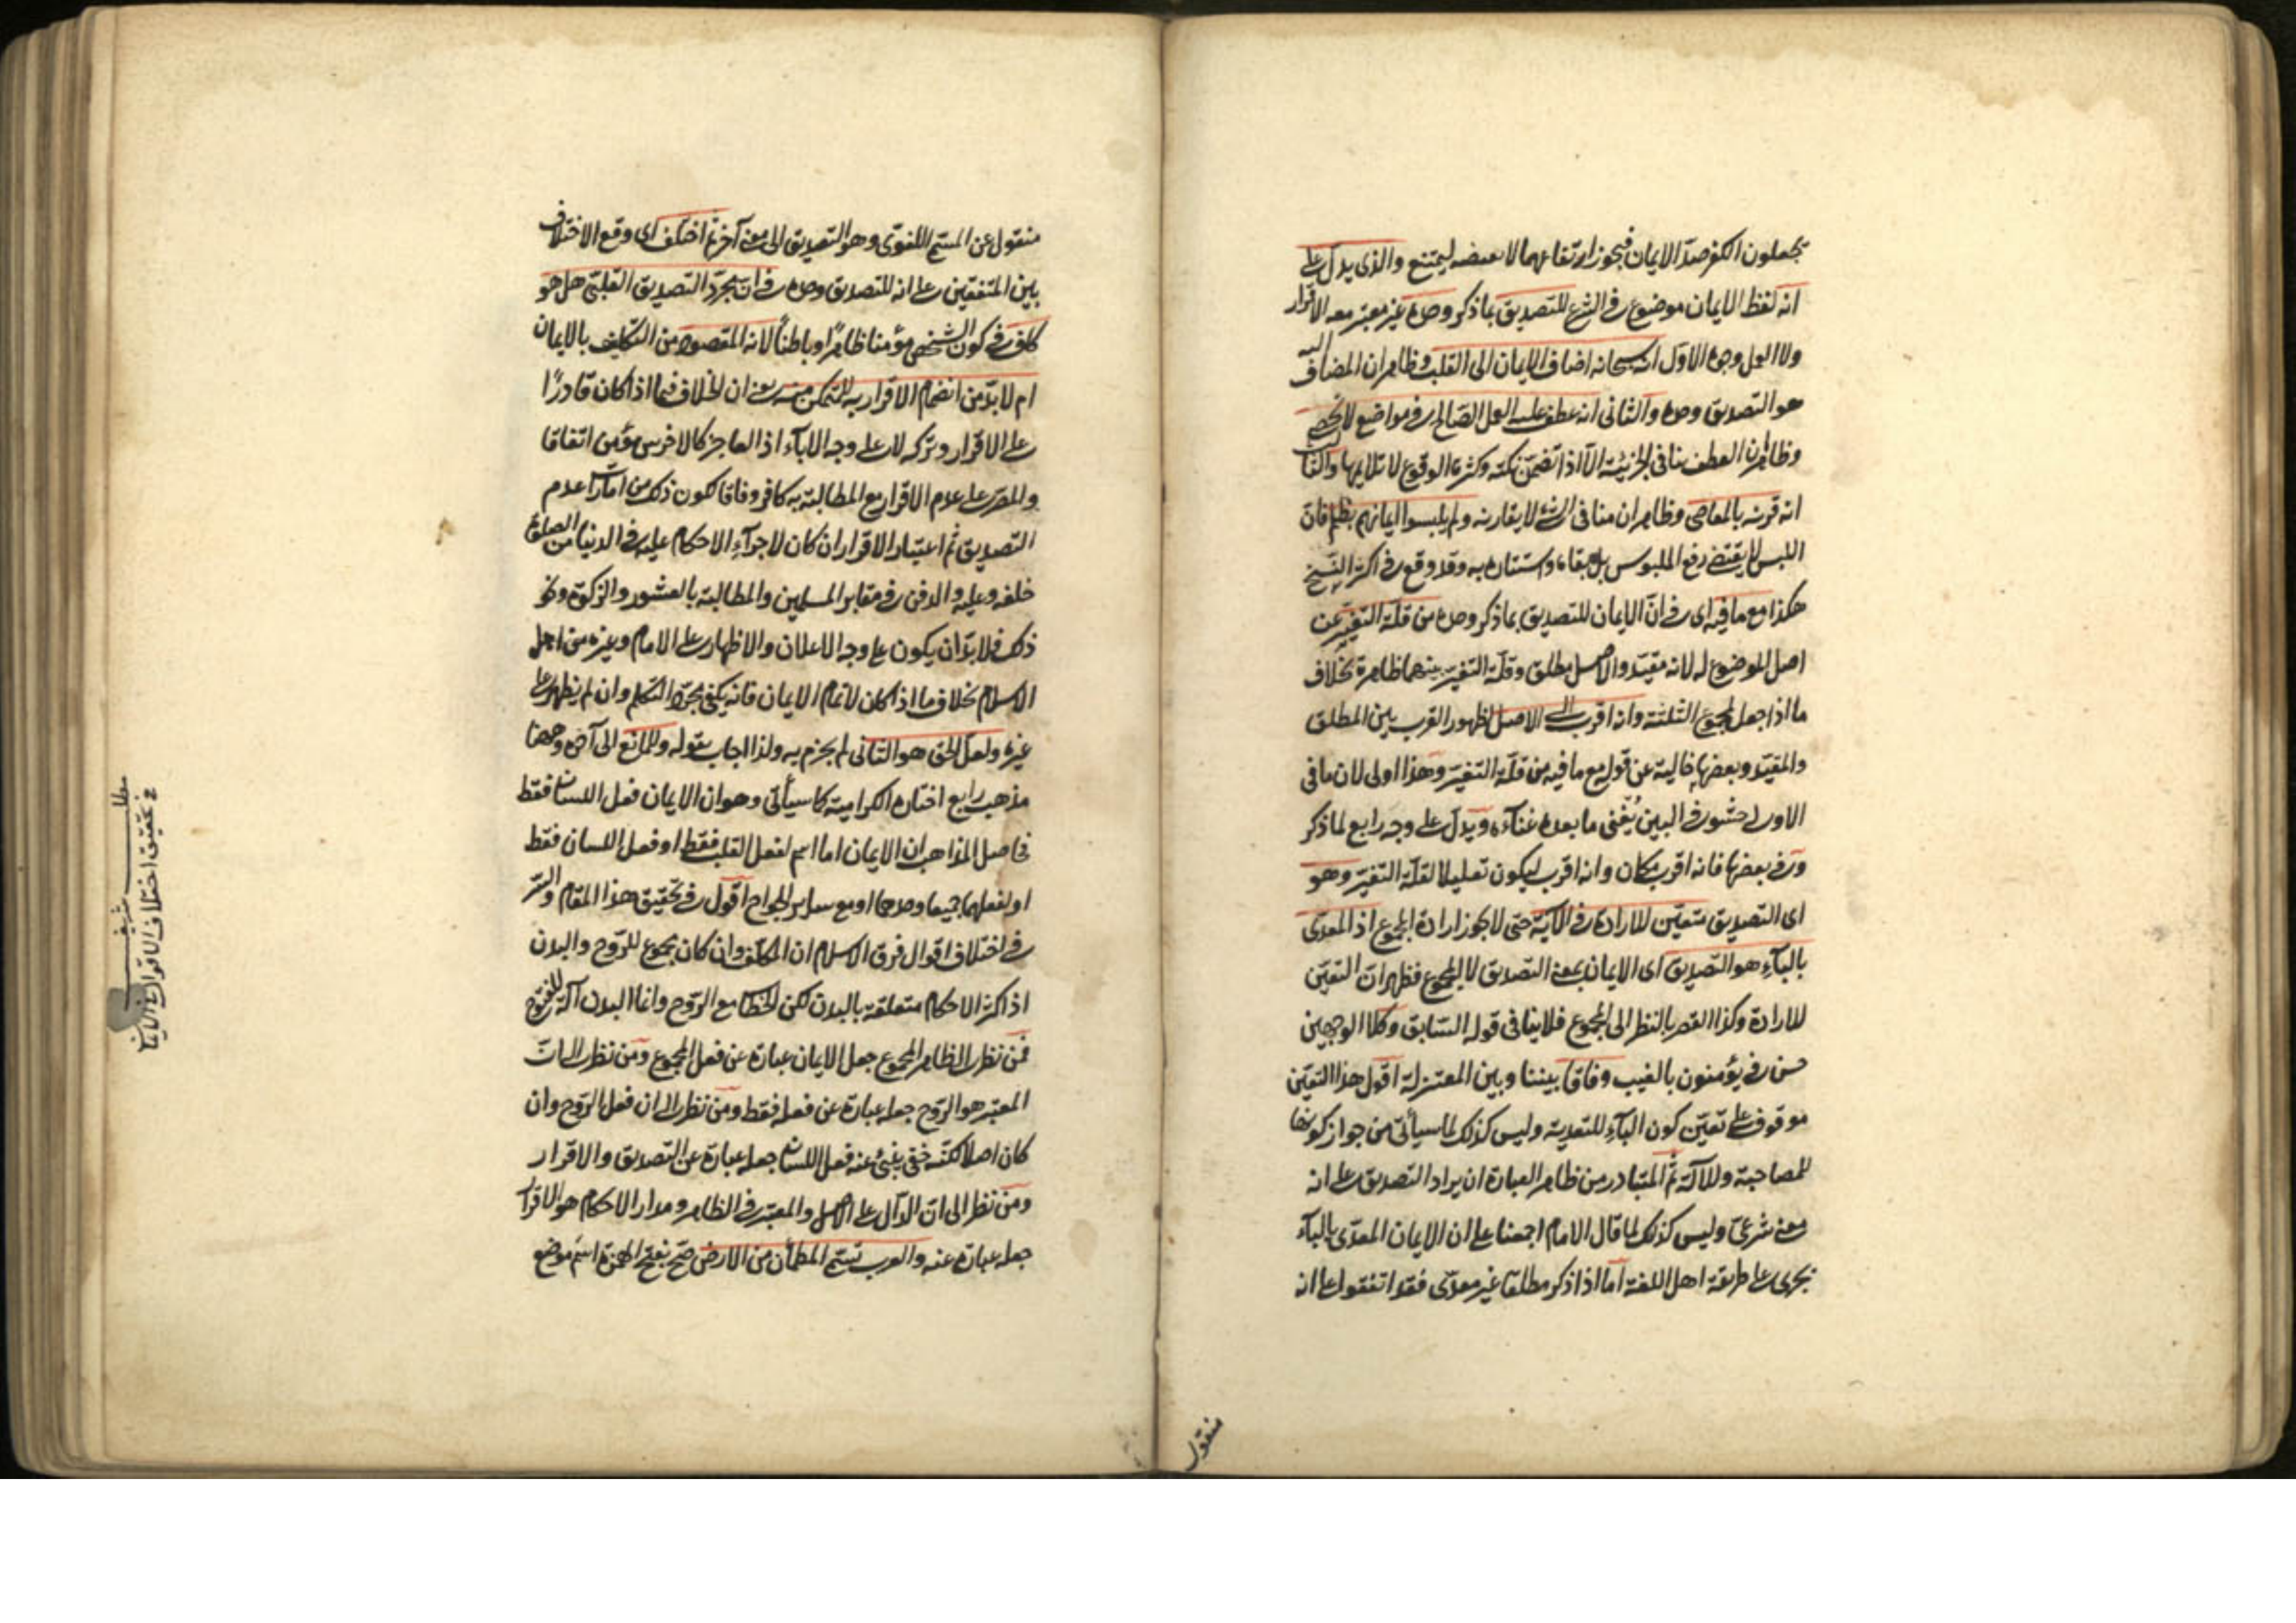 يجعلون الكفر ضدّ الايمان فيجوز ارتفاعهما لا نقيضه ليمتنع والذى يدلّ على
انه لفظ الايمان موضوع فى الشرع للتصديق بما ذكر وحده غير معتبر معه الاقرار
ولا العمل وجوه الاول انه سبحانه اضاف الايمان الى القلب وظاهر ان المضاف اليه
هو التصديق وحده والثانى انه عطف عليه العمل الصالح فى مواضع لا تحصى
وظاهر ان العطف ينافى الجزئية الّا اذا تضمّن نكتة وكثرة الوقوع لا تلايمها والثالث
انه قرنه بالمعاصى وظاهر ان منافى الشئ لا يقارنه ولم يلبسوا ايمانهم بظلم فانّ
اللبس لا يقتضى رفع الملبوس بل بقاءه واستتاره به وقد وقع فى اكثر النسخ
هكذا مع ما فيه اى فى انّ الايمان للتصديق بما ذكر وحده من قلّة التغيّر عن
اصل الموضوع له لانه مقيّد والاصل مطلق وقلّة التغيّر بينهما ظاهرة بخلاف
ما اذا جعل لمجموع الثلثة وانه اقرب الى الاصل لظهور القرب بين المطلق
والمقيّد وبعضها خالية عن قوله مع ما فيه من قلّة التغيّر وهذا اولى لان ما فى
الاولى حشو فى البين يُغنى ما بعده غناءه ويدلّ على وجه رابع لما ذكر
وفى بعضها فانه اقرب مكان وانه اقرب ليكون تعليلا لقلّة التغيّر وهو
اى التصديق متعيّن للارادة فى الآية حتى لا يجوز ارادة المجموع اذ المعدّى
بالباء هو التصديق اى الايمان بمعنى التصديق لا المجموع فظهر ان التعيّن
للارادة وكذا القصر بالنظر الى المجموع فلا ينافى قوله السّابق وكلا الوجهين
حسن فى يؤمنون بالغيب وفاقا بيننا وبين المعتزلة اقول هذا التعيّن
موقوف على تعيّن كون الباء للتعدية وليس كذلك لما سيأتى من جواز كونها
للمصاحبة وللآلة ثمّ المتبادر من ظاهر العبارة ان يراد التصديق على انه
معنى شرعىّ وليس كذلك لما قال الامام اجمعنا على ان الايمان المعدّى بالباء
يجرى على طريقة اهل اللغة امّا اذا ذكر مطلقا غير معدّى فقد اتفقوا على انه
منقول
منقول عن المسمّى اللغوىّ وهو التصديق الى معنى آخر ثمّ اختلف اى وقع الاختلاف
بين المتفقين على انه للتصديق وحده فى انّ مجرّد التصديق القلبىّ هل هو
كاف فى كون الشخص مؤمنا ظاهرًا وباطنًا لانه المقصود من التكليف بالايمان
ام لا بدّ من انضمام الاقرار به للمتمكّن منه يعنى ان الخلاف فيما اذا كان قادرًا
على الاقرار وتركه لا على وجه الاباء اذ العاجز كالاخرس مؤمن اتفاقا
والمصرّ على عدم الاقرار مع المطالبة به كافر وفاقا لكون ذلك من امارات عدم
التصديق ثمّ اعتبار الاقرار ان كان لاجراء الاحكام عليه فى الدنيا من الصلوة
خلفه وعليه والدفن فى مقابر المسلمين والمطالبة بالعشور والزكوة ونحو
ذلك فلا بدّ ان يكون على وجه الاعلان والاظهار على الامام وغيره من اهل
الاسلام بخلاف ما اذا كان لاتمام الايمان فانه يكفى مجرّد التكلم وان لم يظهر على
غيره ولعلّ الحق هو الثانى لم يجزم به ولذا اجاب بقوله وللمانع الى آخره وههنا
مذهب رابع اختاره الكرامية كما سيأتى وهو ان الايمان فعل اللسان فقط
فحاصل المذاهب ان الايمان اما اسم لفعل القلب فقط او فعل اللسان فقط
او لفعلهما جميعا وحدهما او مع سائر الجوارح اقول فى تحقيق هذا المقام والسرّ
فى اختلاف اقوال فرق الاسلام ان المكلّف وان كان مجموع للرّوح والبدن
اذ اكثر الاحكام متعلقة بالبدن لكن الخطاب مع الرّوح وانما البدن آلة للرّوح
فمن نظر الى ظاهر المجموع جعل الايمان عبارة عن فعل المجموع ومن نظر الى انّ
المعتبر هو الرّوح جعله عبارة عن فعله فقط ومن نظر الى ان فعل الرّوح وان
كان اصلا لكنّه خفىّ ينبئ عنه فعل اللسان جعله عبارة عن التصديق والاقرار
ومن نظر الى انّ الدّال على الاصل والمعتبر فى الظاهر ومدار الاحكام هو الاقرار
جعله عبارة عنه والعرب تسمّى المطمأن من الارض صحّ بفتح الهمزة اسم موضع
مطلب شريف
فى تحقيق اختلاف الاقوال فى الايمان